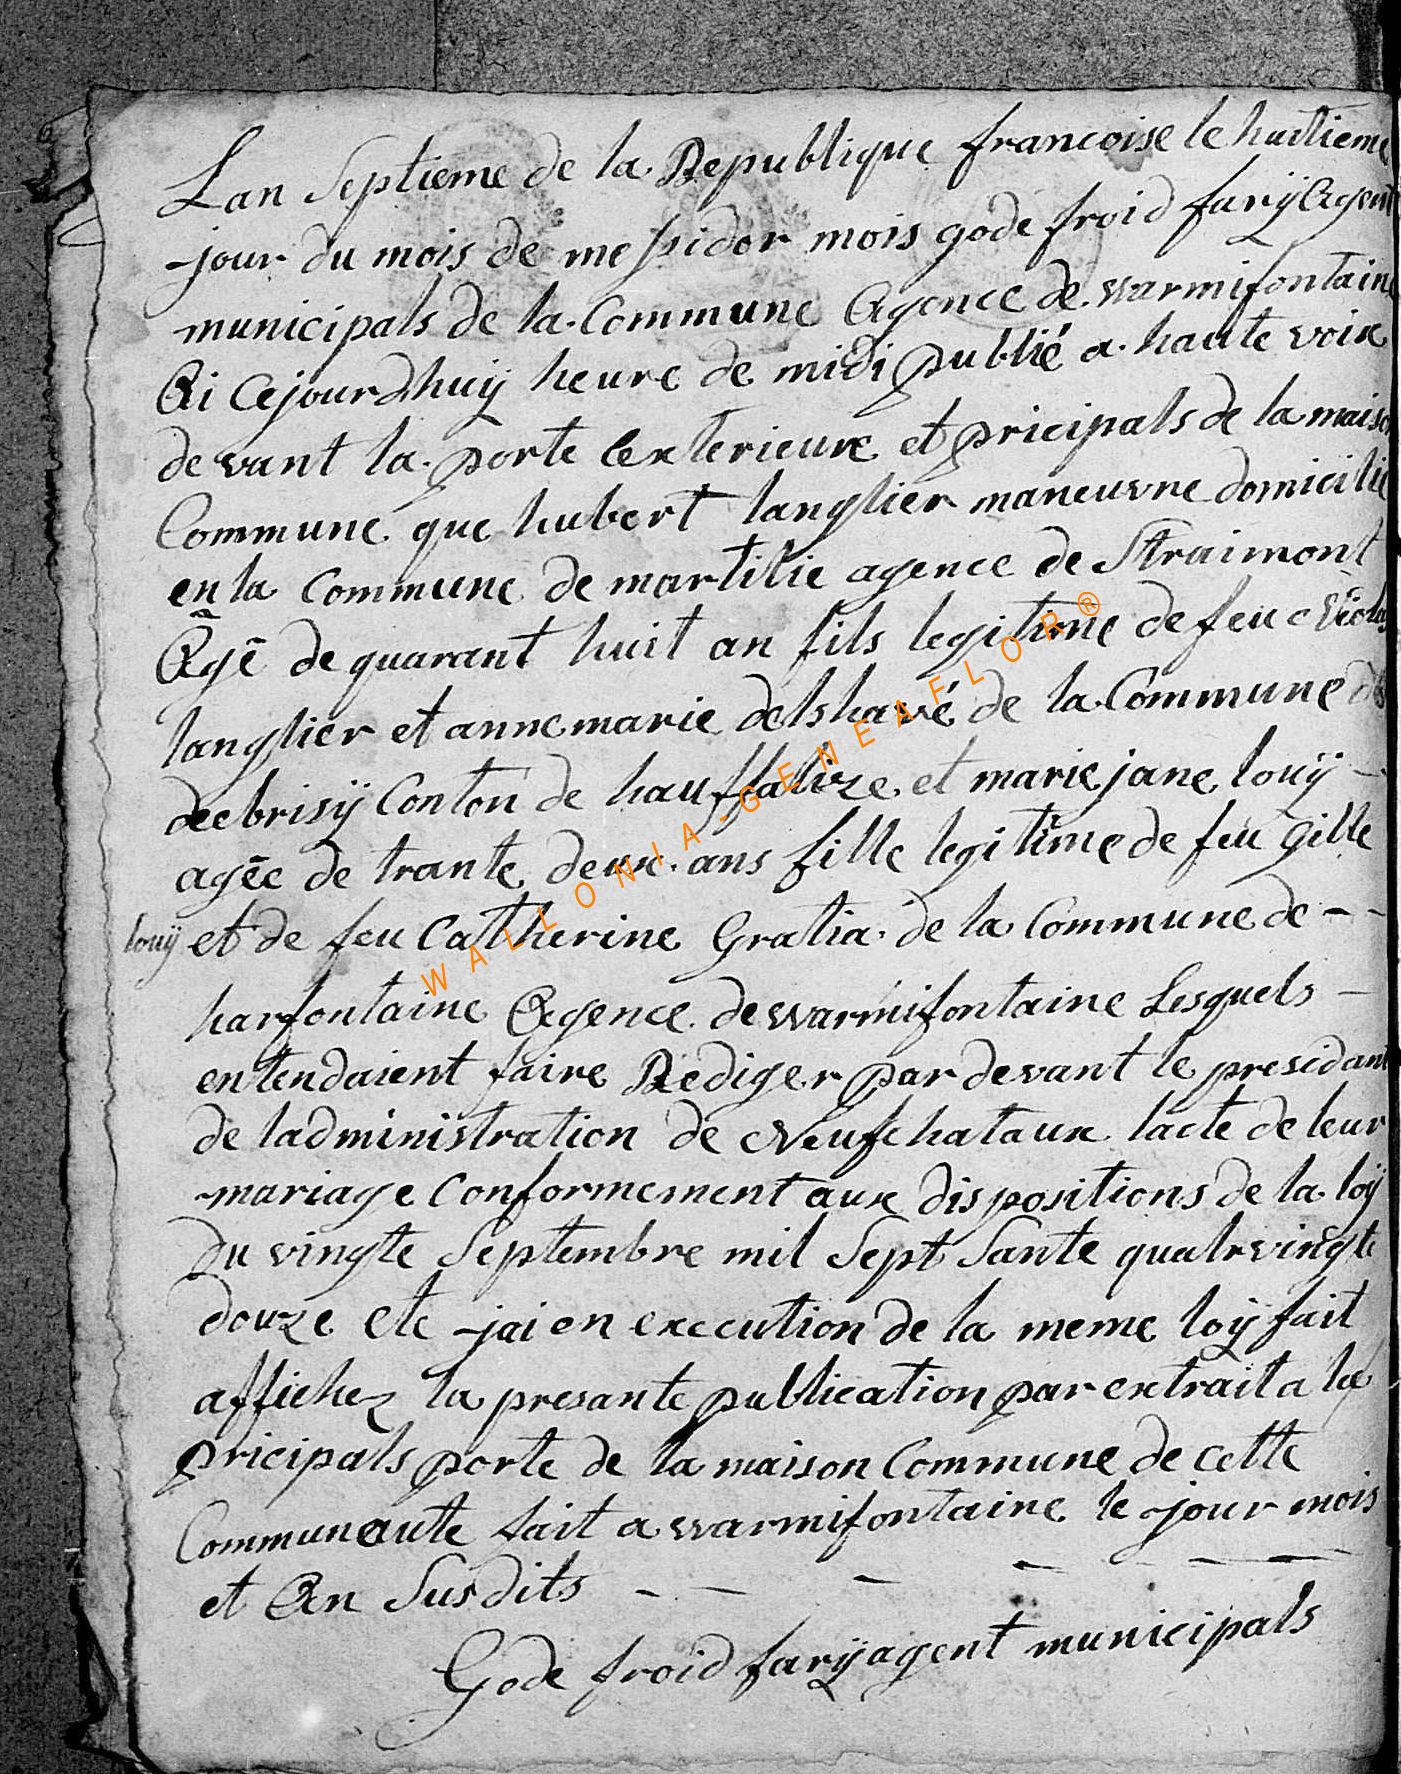 Lan Septieme de la Republique francoise le huitieme
jour du mois de messidor mois gode froid farÿ Agent
municipals de la Commune Agence de warmifontaine
Ai Cejourdhuij heure de midi publié a haute voix
de vant la porte Exterieure et pricipals de la maison
Commune que hubert langlier maneuvre domicilié
en la Commune de martilie agence de Straimont
Agé de quarant huit an fils legitime de feu Nicolas
langlier et anne marie delshavé de la Commune
de brisÿ Conton de hauffalize et marie jane louÿ
agée de trante deux ans fille legitime de feu gille
louÿ et de feu Catherine Gratia de la Commune de - -
harfontaine Agence de warmifontaine Lesquels -
entendaient faire Rediger par devant le presidant
de ladministration de Neufchataux lacte de leur
mariage Conformement aux dispositions de la loÿ
du vingte Septembre mil Sept Sante quatrvingte
douze etc jai en execution de la meme loÿ fait
affichez la presante publication par extrait a la
pricipals porte de la maison Commune de cette
Communaute fait a warmifontaine le jour mois
et An Susdits - - - - - -
Gode froid farÿ agent municipals
WALLONIA-GENEAFLOR®